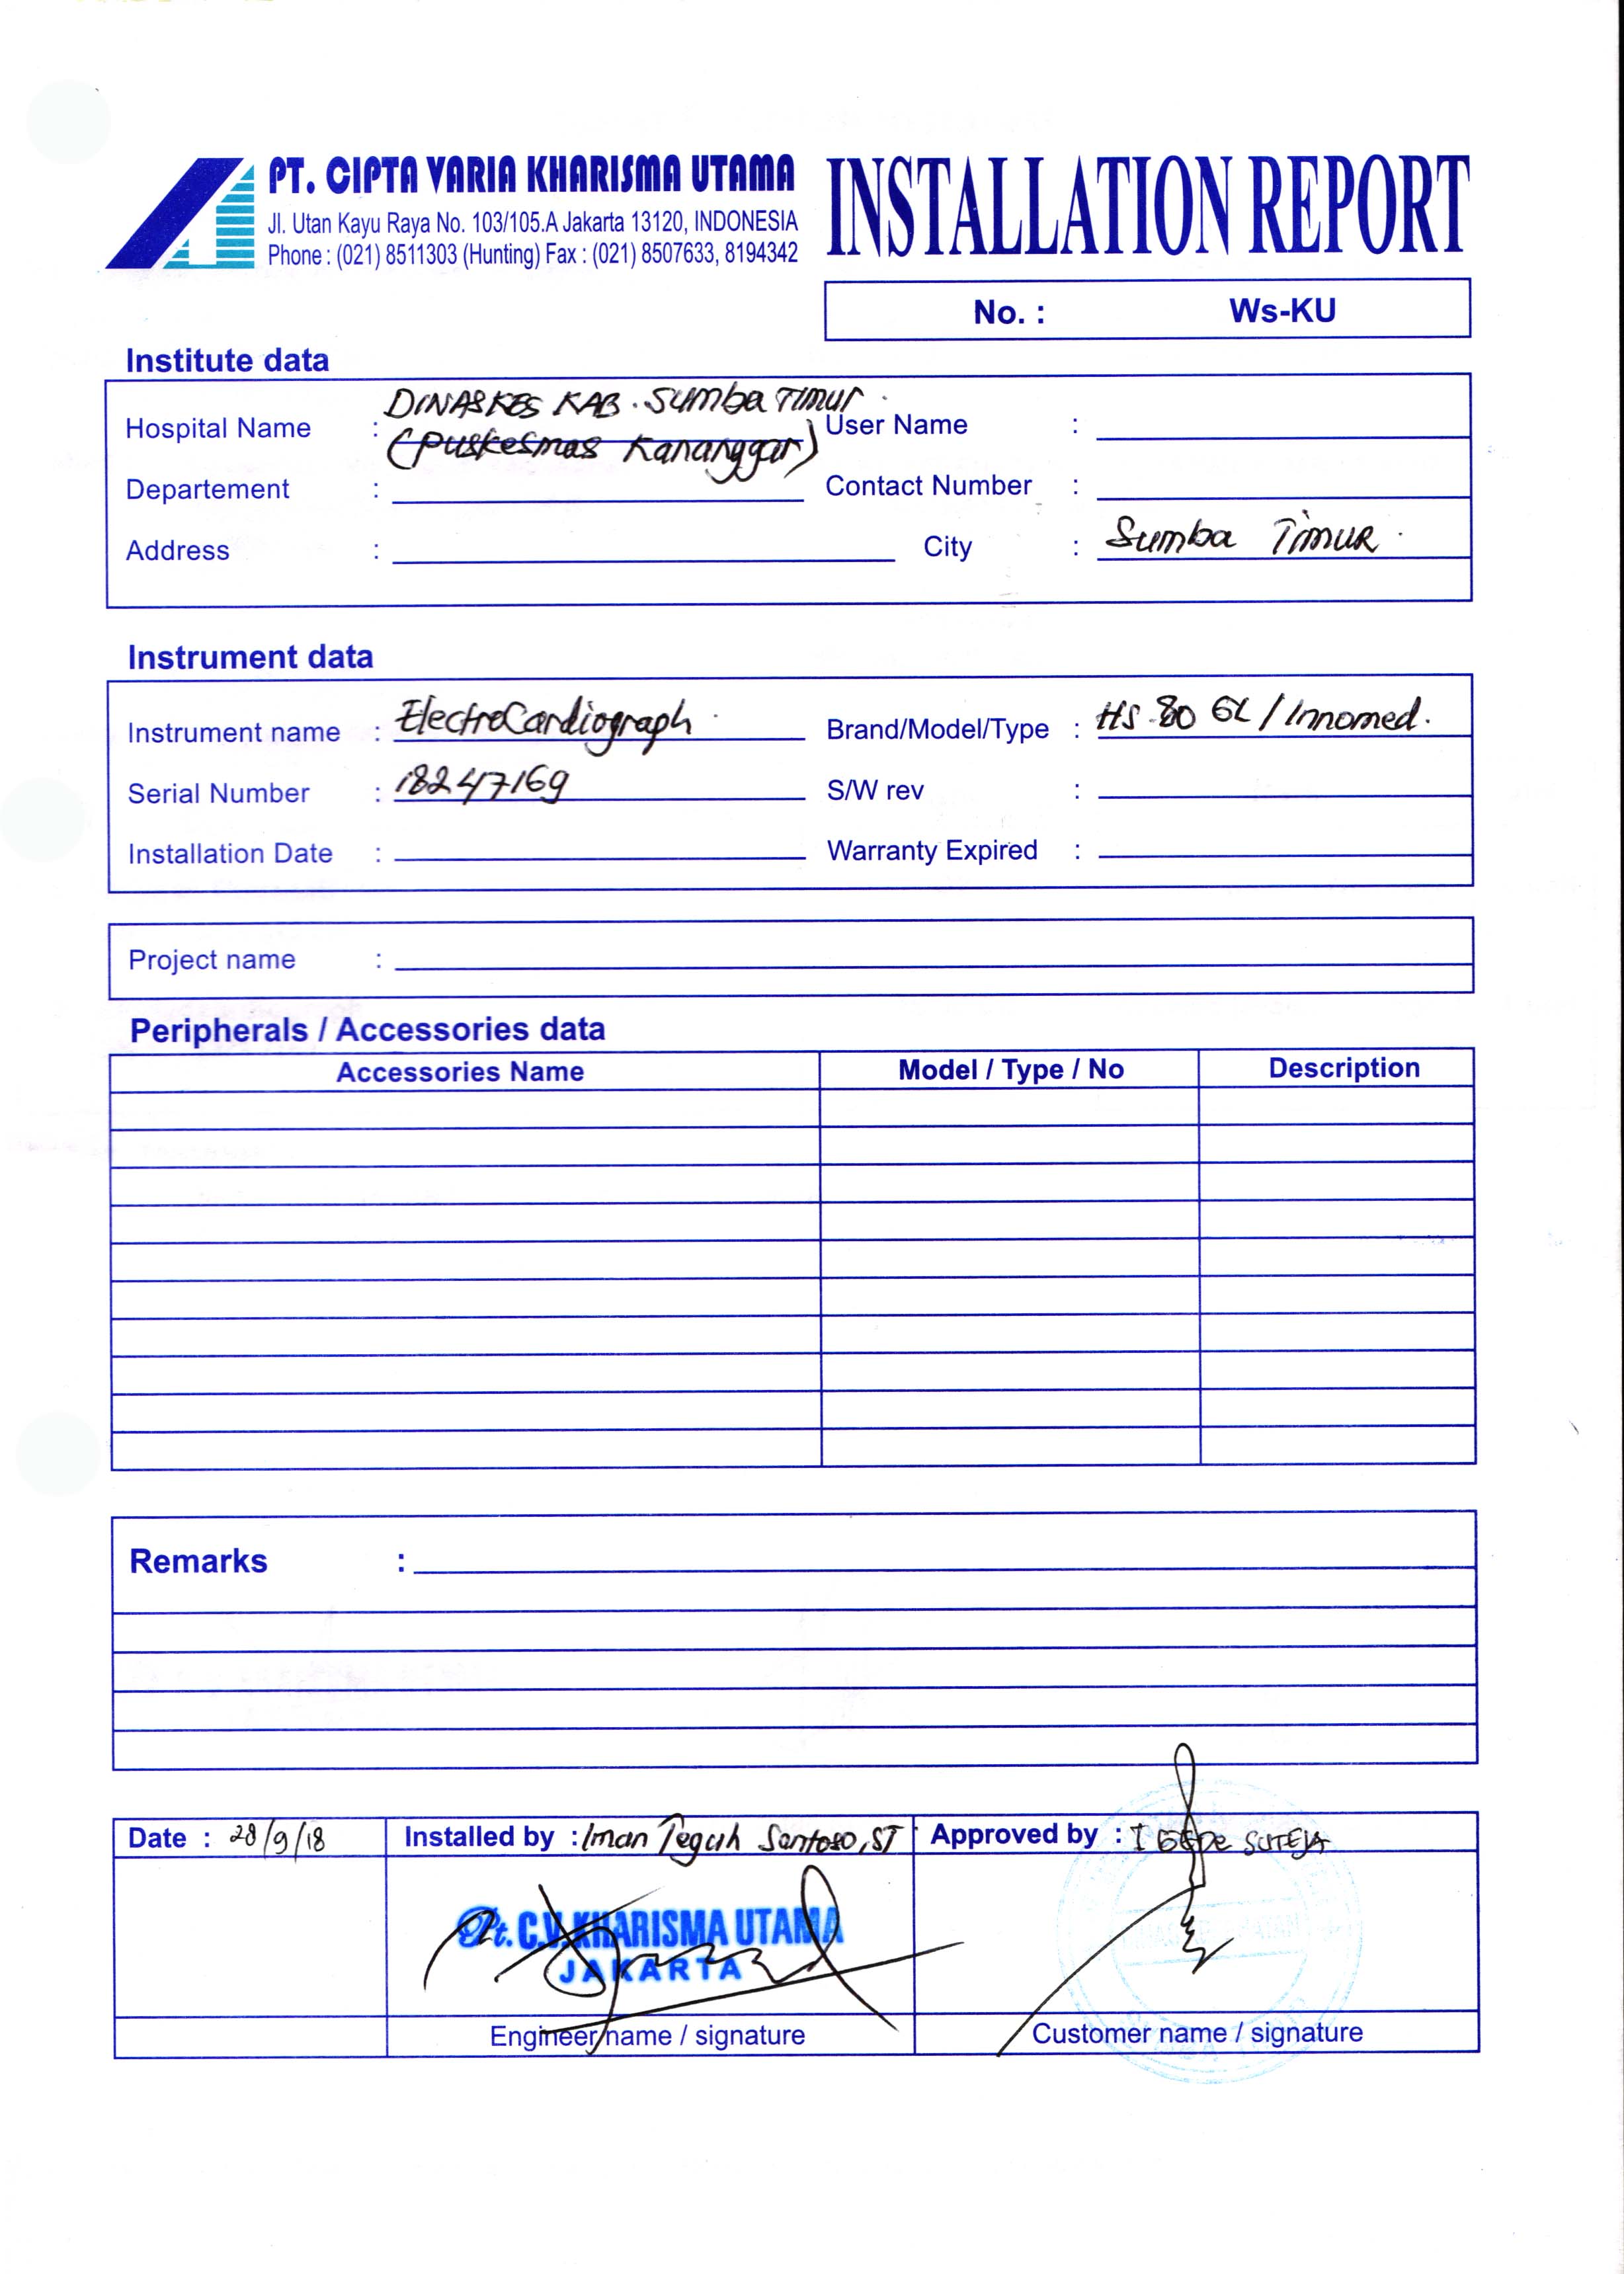 PT. CIPTA VARIA KHARISMA UTAMA
Jl. Utan Kayu Raya No. 103/105.A Jakarta 13120, INDONESIA
Phone : (021) 8511303 (Hunting) Fax : (021) 8507633, 8194342
INSTALLATION REPORT
No. : Ws-KU
Institute data
Hospital Name : DINASKES KAB. Sumba Timur.
(Puskesmas Kananggar)
User Name :
Departement :
Contact Number :
Address :
City : Sumba Timur.
Instrument data
Instrument name : ElectroCardiograph.
Brand/Model/Type : HS 80 GL / Innomed.
Serial Number : 18247169
S/W rev :
Installation Date :
Warranty Expired :
Project name :
Peripherals / Accessories data
Accessories Name Model / Type / No Description
Remarks :
Date : 28/9/18 Installed by : Iman Teguh Santoso, ST Approved by : I GEDE SUTEJA
Pt. C.V. KHARISMA UTAMA
JAKARTA
Engineer name / signature Customer name / signature